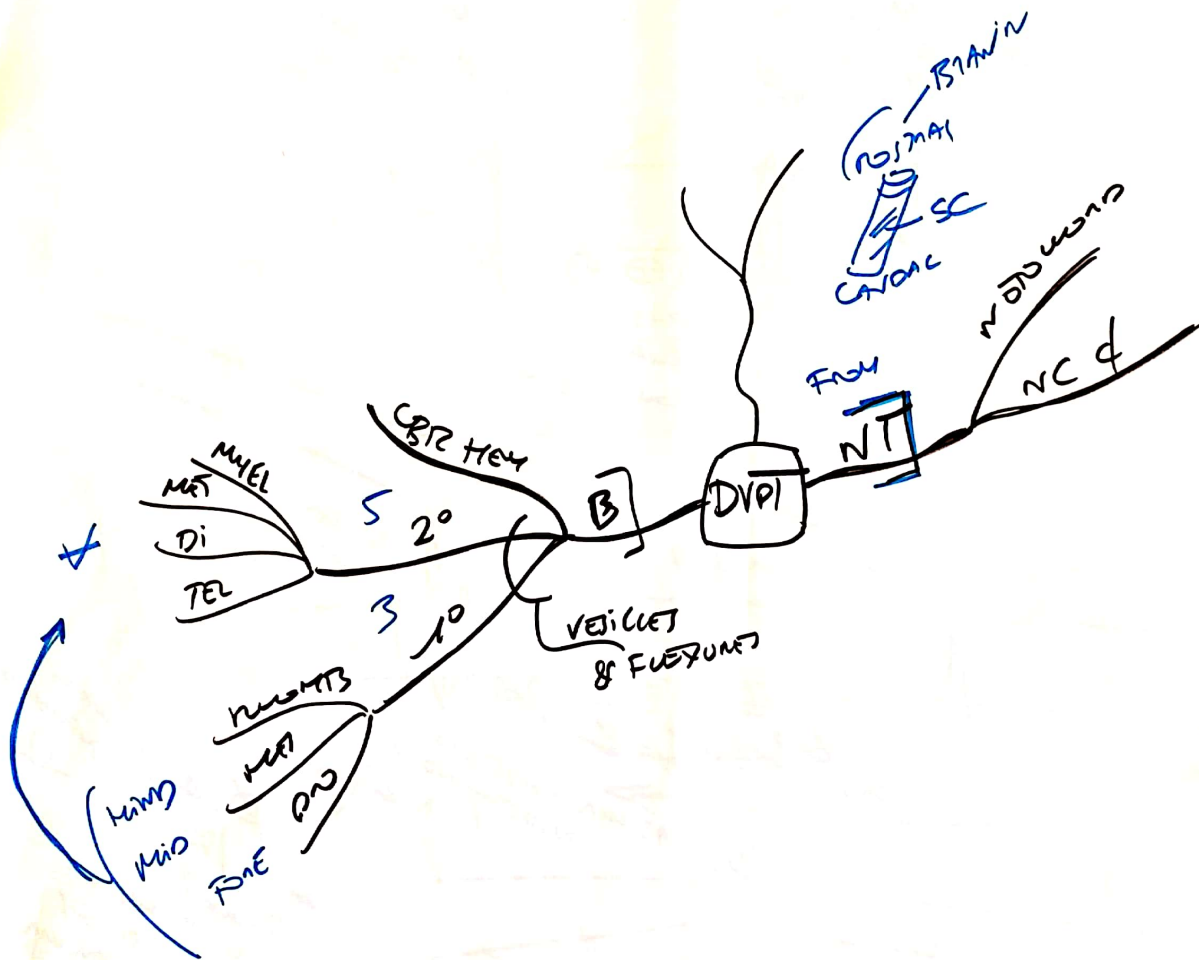 BRAIN
ROSTRAL
SC
CAUDAL
NOTOCHORD
NC
FROM
NT
DVPT
B
CBR HEM
5
2°
MYEL
MET
Di
TEL
3
1°
VESiCLES
& FLEXURES
RHOMB
PRO
HiND
MiD
FORE